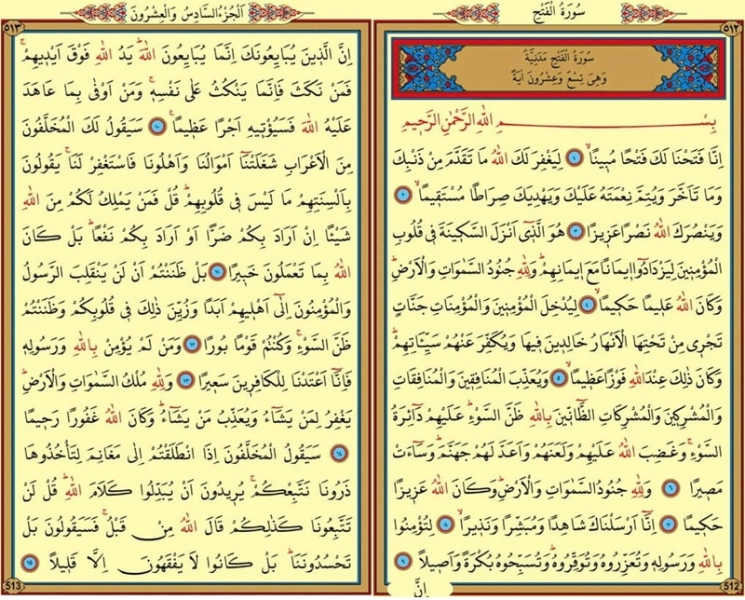 سُورَةُ الْفَتْحِ
٥١٢
سُورَةُ الْفَتْحِ مَدَنِيَّةٌ
وَهِىَ تِسْعٌ وَعِشْرُونَ اٰيَةً
بِسْــــــــــــمِ اللهِ الرَّحْمٰنِ الرَّحِيمِ
اِنَّا فَتَحْنَا لَكَ فَتْحًا مُبِينًا ۙ ١ لِيَغْفِرَ لَكَ اللهُ مَا تَقَدَّمَ مِنْ ذَنْبِكَ
وَمَا تَاَخَّرَ وَيُتِمَّ نِعْمَتَهُ عَلَيْكَ وَيَهْدِيَكَ صِرَاطًا مُسْتَقِيمًا ۙ ٢
وَيَنْصُرَكَ اللهُ نَصْرًا عَزِيزًا ٣ هُوَ الَّذِٓى اَنْزَلَ السَّكِينَةَ فِى قُلُوبِ
الْمُؤْمِنِينَ لِيَزْدَادُٓوا اِيمَانًا مَعَ اِيمَانِهِمْ ۜ وَلِلّٰهِ جُنُودُ السَّمٰوَاتِ وَالْاَرْضِ ۜ
وَكَانَ اللهُ عَلِيمًا حَكِيمًا ۙ ٤ لِيُدْخِلَ الْمُؤْمِنِينَ وَالْمُؤْمِنَاتِ جَنَّاتٍ
تَجْرِى مِنْ تَحْتِهَا الْاَنْهَارُ خَالِدِينَ فِيهَا وَيُكَفِّرَ عَنْهُمْ سَيِّـَٔاتِهِمْ ۜ
وَكَانَ ذٰلِكَ عِنْدَ اللهِ فَوْزًا عَظِيمًا ۙ ٥ وَيُعَذِّبَ الْمُنَافِقِينَ وَالْمُنَافِقَاتِ
وَالْمُشْرِكِينَ وَالْمُشْرِكَاتِ الظَّٓانِّينَ بِاللهِ ظَنَّ السَّوْءِ ۜ عَلَيْهِمْ دَٓائِرَةُ
السَّوْءِ ۚ وَغَضِبَ اللهُ عَلَيْهِمْ وَلَعَنَهُمْ وَاَعَدَّ لَهُمْ جَهَنَّمَ ۜ وَسَٓاءَتْ
مَصِيرًا ٦ وَلِلّٰهِ جُنُودُ السَّمٰوَاتِ وَالْاَرْضِ ۜ وَكَانَ اللهُ عَزِيزًا
حَكِيمًا ٧ اِنَّٓا اَرْسَلْنَاكَ شَاهِدًا وَمُبَشِّرًا وَنَذِيرًا ۙ ٨ لِتُؤْمِنُوا
بِاللهِ وَرَسُولِهِ وَتُعَزِّرُوهُ وَتُوَقِّرُوهُ ۜ وَتُسَبِّحُوهُ بُكْرَةً وَاَصِيلًا ٩
اِنَّ
512
اَلْجُزْءُ السَّادِسُ وَالْعِشْرُونَ
٥١٣
اِنَّ الَّذِينَ يُبَايِعُونَكَ اِنَّمَا يُبَايِعُونَ اللهَ ۜ يَدُ اللهِ فَوْقَ اَيْدِيهِمْ ۚ
فَمَنْ نَكَثَ فَاِنَّمَا يَنْكُثُ عَلٰى نَفْسِهِ ۚ وَمَنْ اَوْفٰى بِمَا عَاهَدَ
عَلَيْهُ اللهَ فَسَيُؤْتِيهِ اَجْرًا عَظِيمًا ۟ ١٠ سَيَقُولُ لَكَ الْمُخَلَّفُونَ
مِنَ الْاَعْرَابِ شَغَلَتْنَٓا اَمْوَالُنَا وَاَهْلُونَا فَاسْتَغْفِرْ لَنَا ۚ يَقُولُونَ
بِاَلْسِنَتِهِمْ مَا لَيْسَ فِى قُلُوبِهِمْ ۜ قُلْ فَمَنْ يَمْلِكُ لَكُمْ مِنَ اللهِ
شَيْـًٔا اِنْ اَرَادَ بِكُمْ ضَرًّا اَوْ اَرَادَ بِكُمْ نَفْعًا ۜ بَلْ كَانَ
اللهُ بِمَا تَعْمَلُونَ خَبِيرًا ١١ بَلْ ظَنَنْتُمْ اَنْ لَنْ يَنْقَلِبَ الرَّسُولُ
وَالْمُؤْمِنُونَ اِلٰٓى اَهْلِيهِمْ اَبَدًا وَزُيِّنَ ذٰلِكَ فِى قُلُوبِكُمْ وَظَنَنْتُمْ
ظَنَّ السَّوْءِ ۚ وَكُنْتُمْ قَوْمًا بُورًا ١٢ وَمَنْ لَمْ يُؤْمِنْ بِاللهِ وَرَسُولِهِ
فَاِنَّٓا اَعْتَدْنَا لِلْكَافِرِينَ سَعِيرًا ١٣ وَلِلّٰهِ مُلْكُ السَّمٰوَاتِ وَالْاَرْضِ ۜ
يَغْفِرُ لِمَنْ يَشَٓاءُ وَيُعَذِّبُ مَنْ يَشَٓاءُ ۜ وَكَانَ اللهُ غَفُورًا رَحِيمًا
١٤ سَيَقُولُ الْمُخَلَّفُونَ اِذَا انْطَلَقْتُمْ اِلٰى مَغَانِمَ لِتَأْخُذُوهَا
ذَرُونَا نَتَّبِعْكُمْ ۚ يُرِيدُونَ اَنْ يُبَدِّلُوا كَلَامَ اللهِ ۜ قُلْ لَنْ
تَتَّبِعُونَا كَذٰلِكُمْ قَالَ اللهُ مِنْ قَبْلُ ۚ فَسَيَقُولُونَ بَلْ
تَحْسُدُونَنَا ۜ بَلْ كَانُوا لَا يَفْقَهُونَ اِلَّا قَلِيلًا ١٥
513